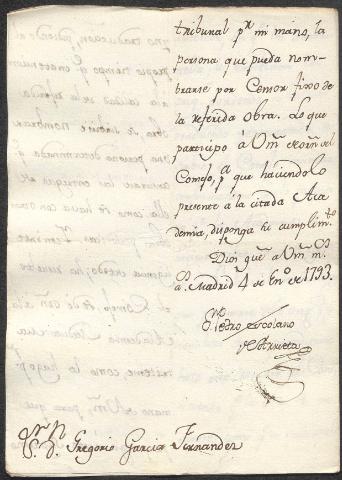 tribunal pr. mi mano, la
persona que pueda nom-
brarse por Censor fixo de
la referida obra. Lo que
participo à Vm. de orn. del
Consejo, pa. que haciendolo
presente à la citada Aca
demia, disponga su cumplimto.
Dios gue. a Vm. ms.
as. Madrid 4 de Eno. de 1793.
Pedro Escolano
de Arrieta
Sr. Dn. Gregorio Garcia Fernandez